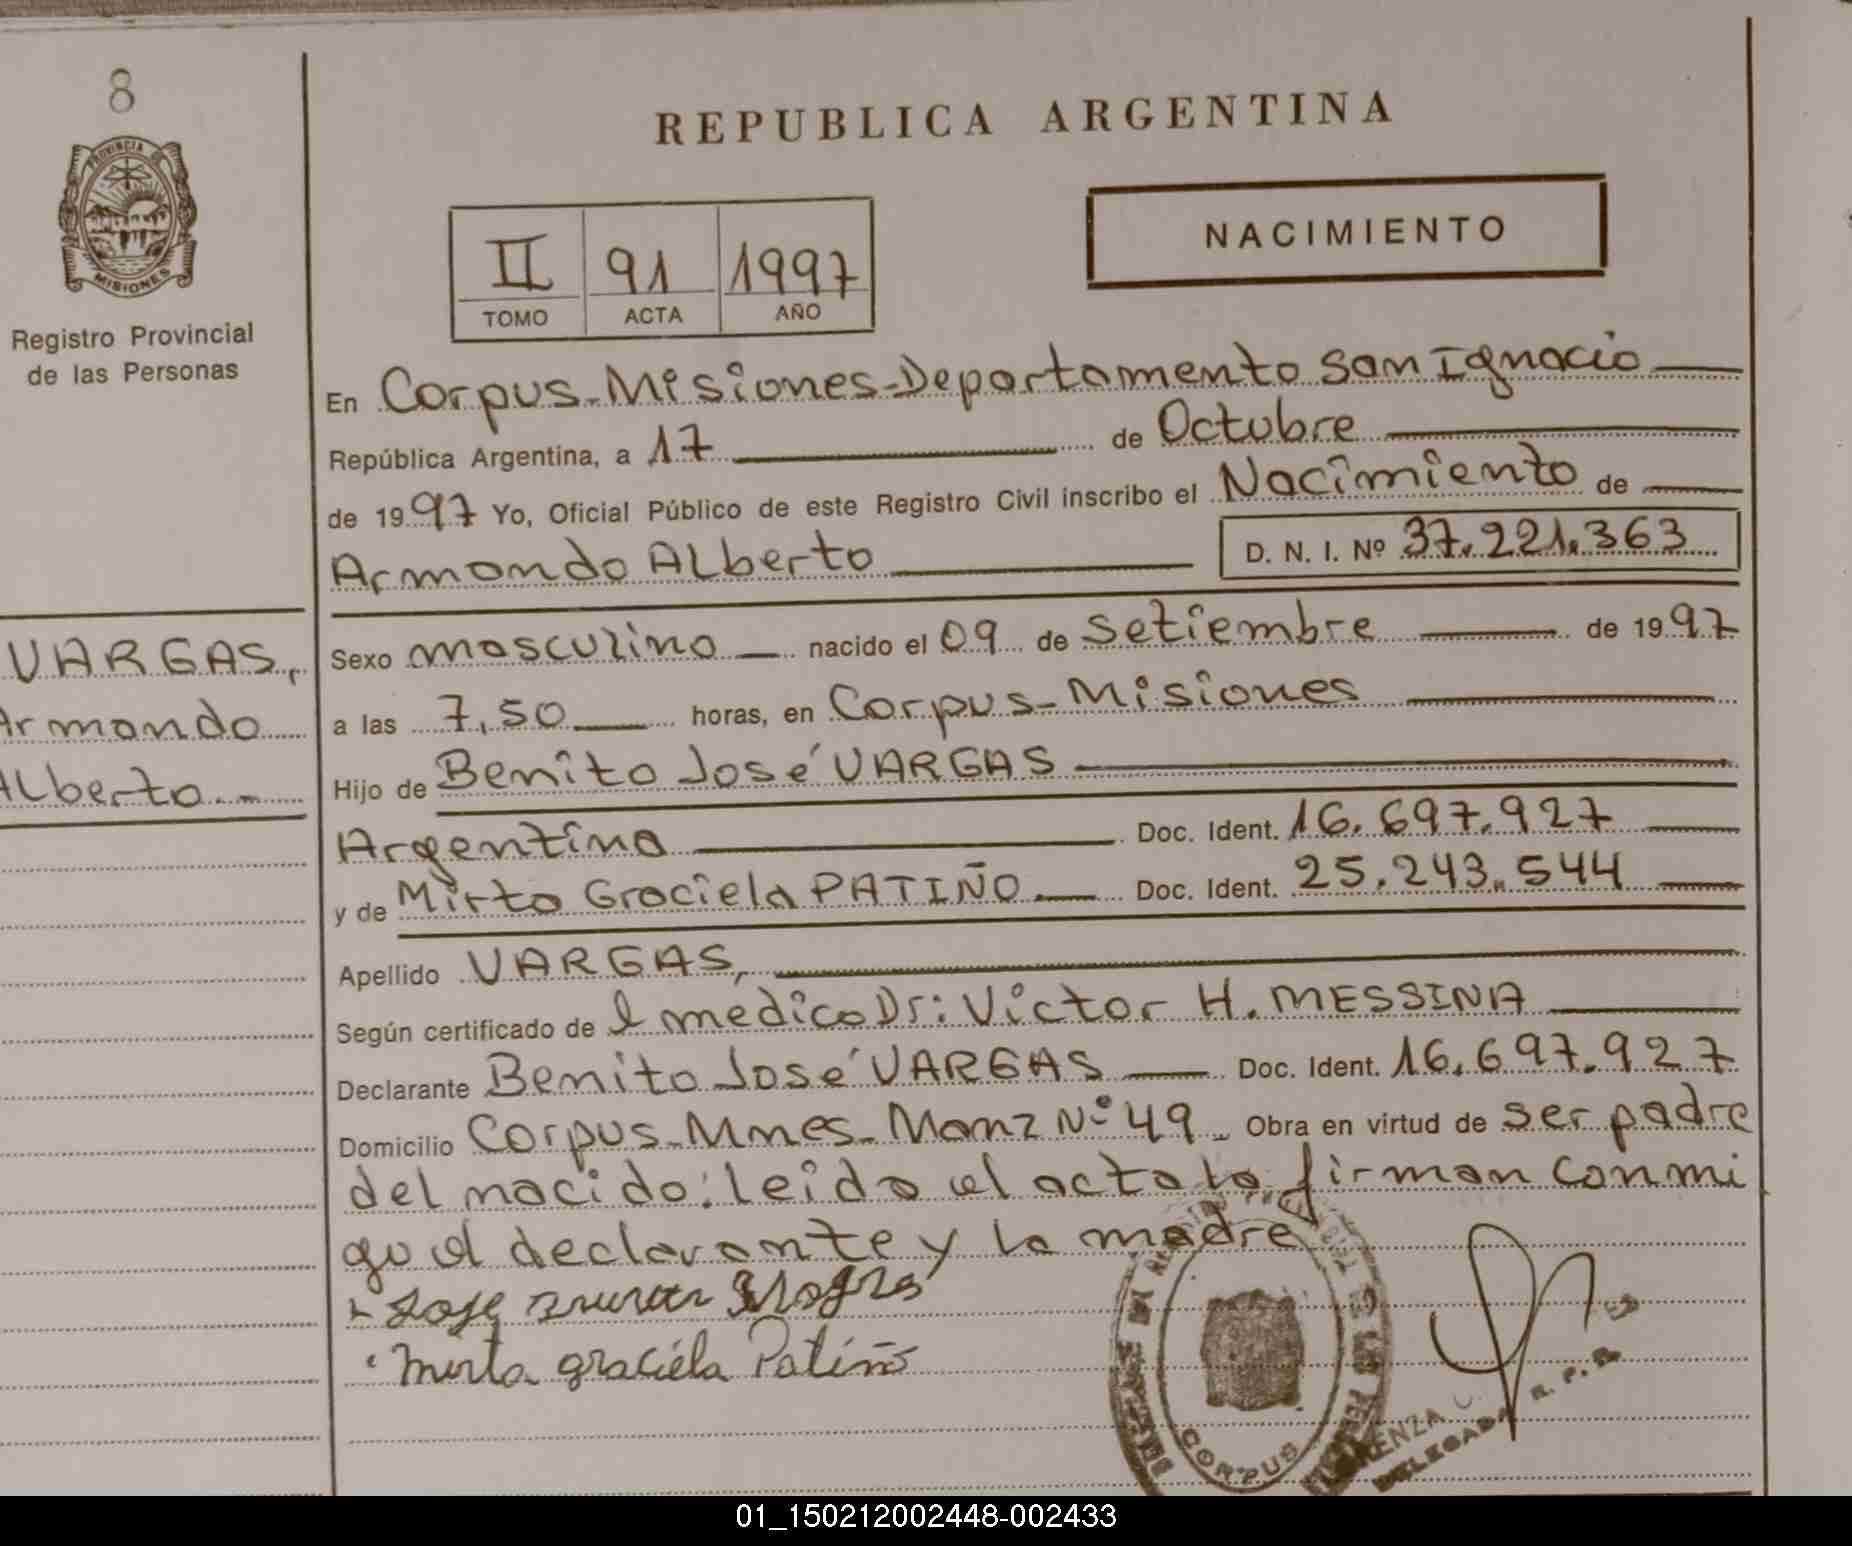 8
PROVINCIA DE
MISIONES
Registro Provincial
de las Personas
VARGAS,
Armando
Alberto.-
REPUBLICA ARGENTINA
NACIMIENTO
II 91 1997
TOMO ACTA AÑO
En Corpus-Misiones-Departamento San Ignacio
República Argentina, a 17 de Octubre
de 1997 Yo, Oficial Público de este Registro Civil inscribo el Nacimiento de
Armando Alberto D. N. I. Nº 37.221.363
Sexo masculino nacido el 09 de Setiembre de 1997
a las 7,50 horas, en Corpus-Misiones
Hijo de Benito José VARGAS
Argentino Doc. Ident. 16.697.927
y de Mirta Graciela PATIÑO Doc. Ident. 25.243.544
Apellido VARGAS,
Según certificado de l medico Dr: Victor H. MESSINA
Declarante Benito José VARGAS Doc. Ident. 16.697.927
Domicilio Corpus-Mnes-Manz Nº 49 Obra en virtud de ser padre
del nacido: leida el acta la firman conmi
go el declarante y la madre
Jose
Mirta graciela Patiño
CORPUS
DELEGADA R. P. P.
01_150212002448-002433